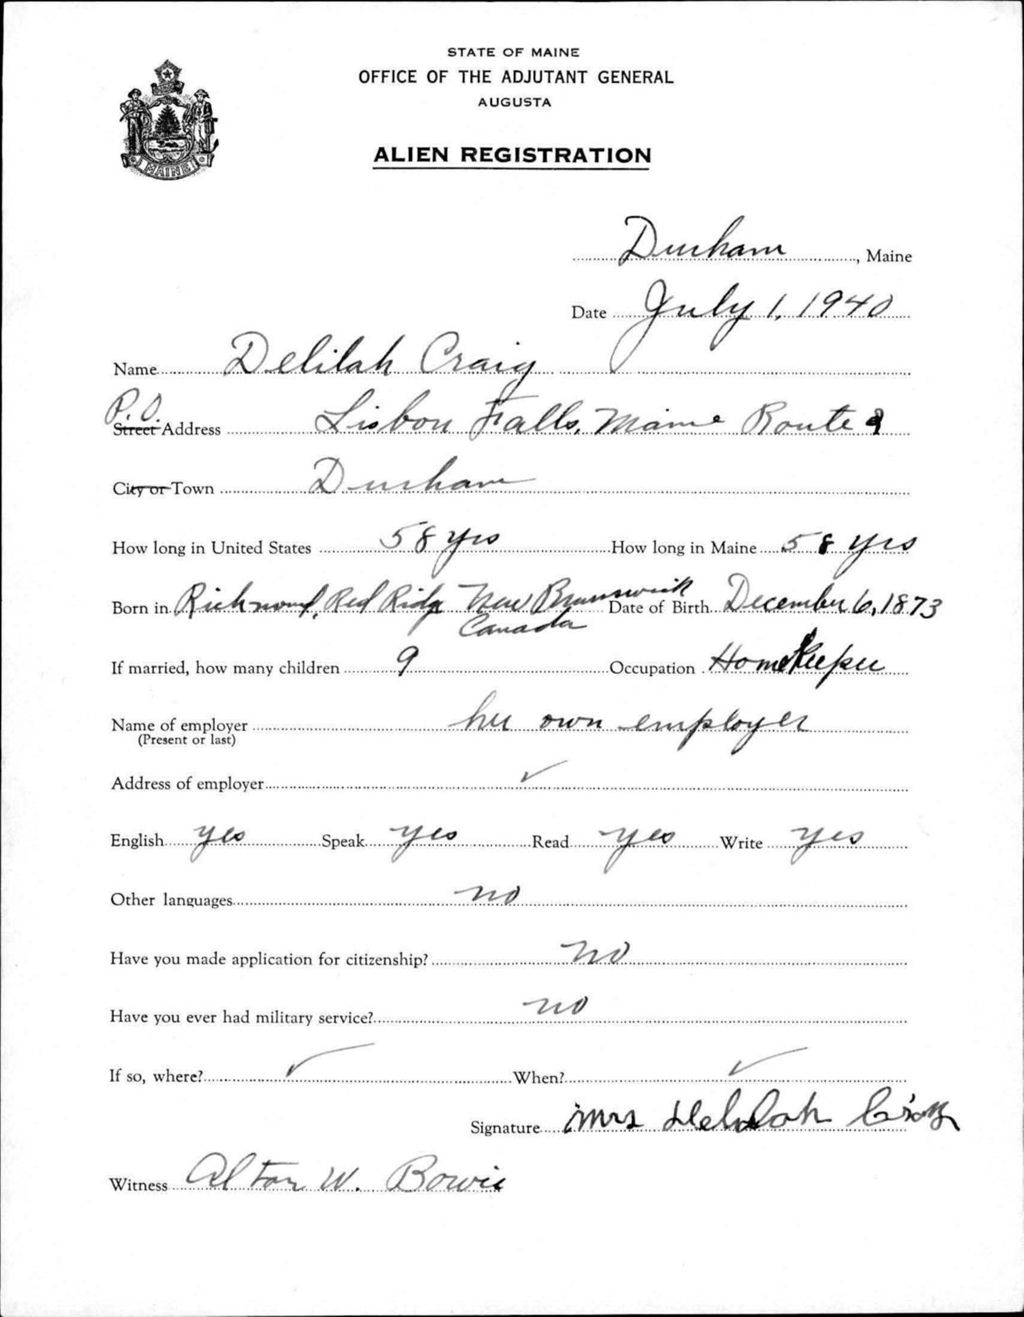 STATE OF MAINE
OFFICE OF THE ADJUTANT GENERAL
AUGUSTA
MAINE
ALIEN REGISTRATION
Durham, Maine
Date July 1, 1940
Name Delilah Craig
P.O.
Street Address Lisbon Falls, Maine Route 2
City or Town Durham
How long in United States 58 yrs How long in Maine 58 yrs
Born in Richmond, Red Ridge New Brunswick Date of Birth December 6, 1873
Canada
If married, how many children 9 Occupation HomeKeeper
Name of employer her own employer
(Present or last)
Address of employer ✓
English yes Speak yes Read yes Write yes
Other languages no
Have you made application for citizenship? No
Have you ever had military service? no
If so, where? ✓ When? ✓
Signature Mrs Delilah Craig
Witness Alton W. Bowie